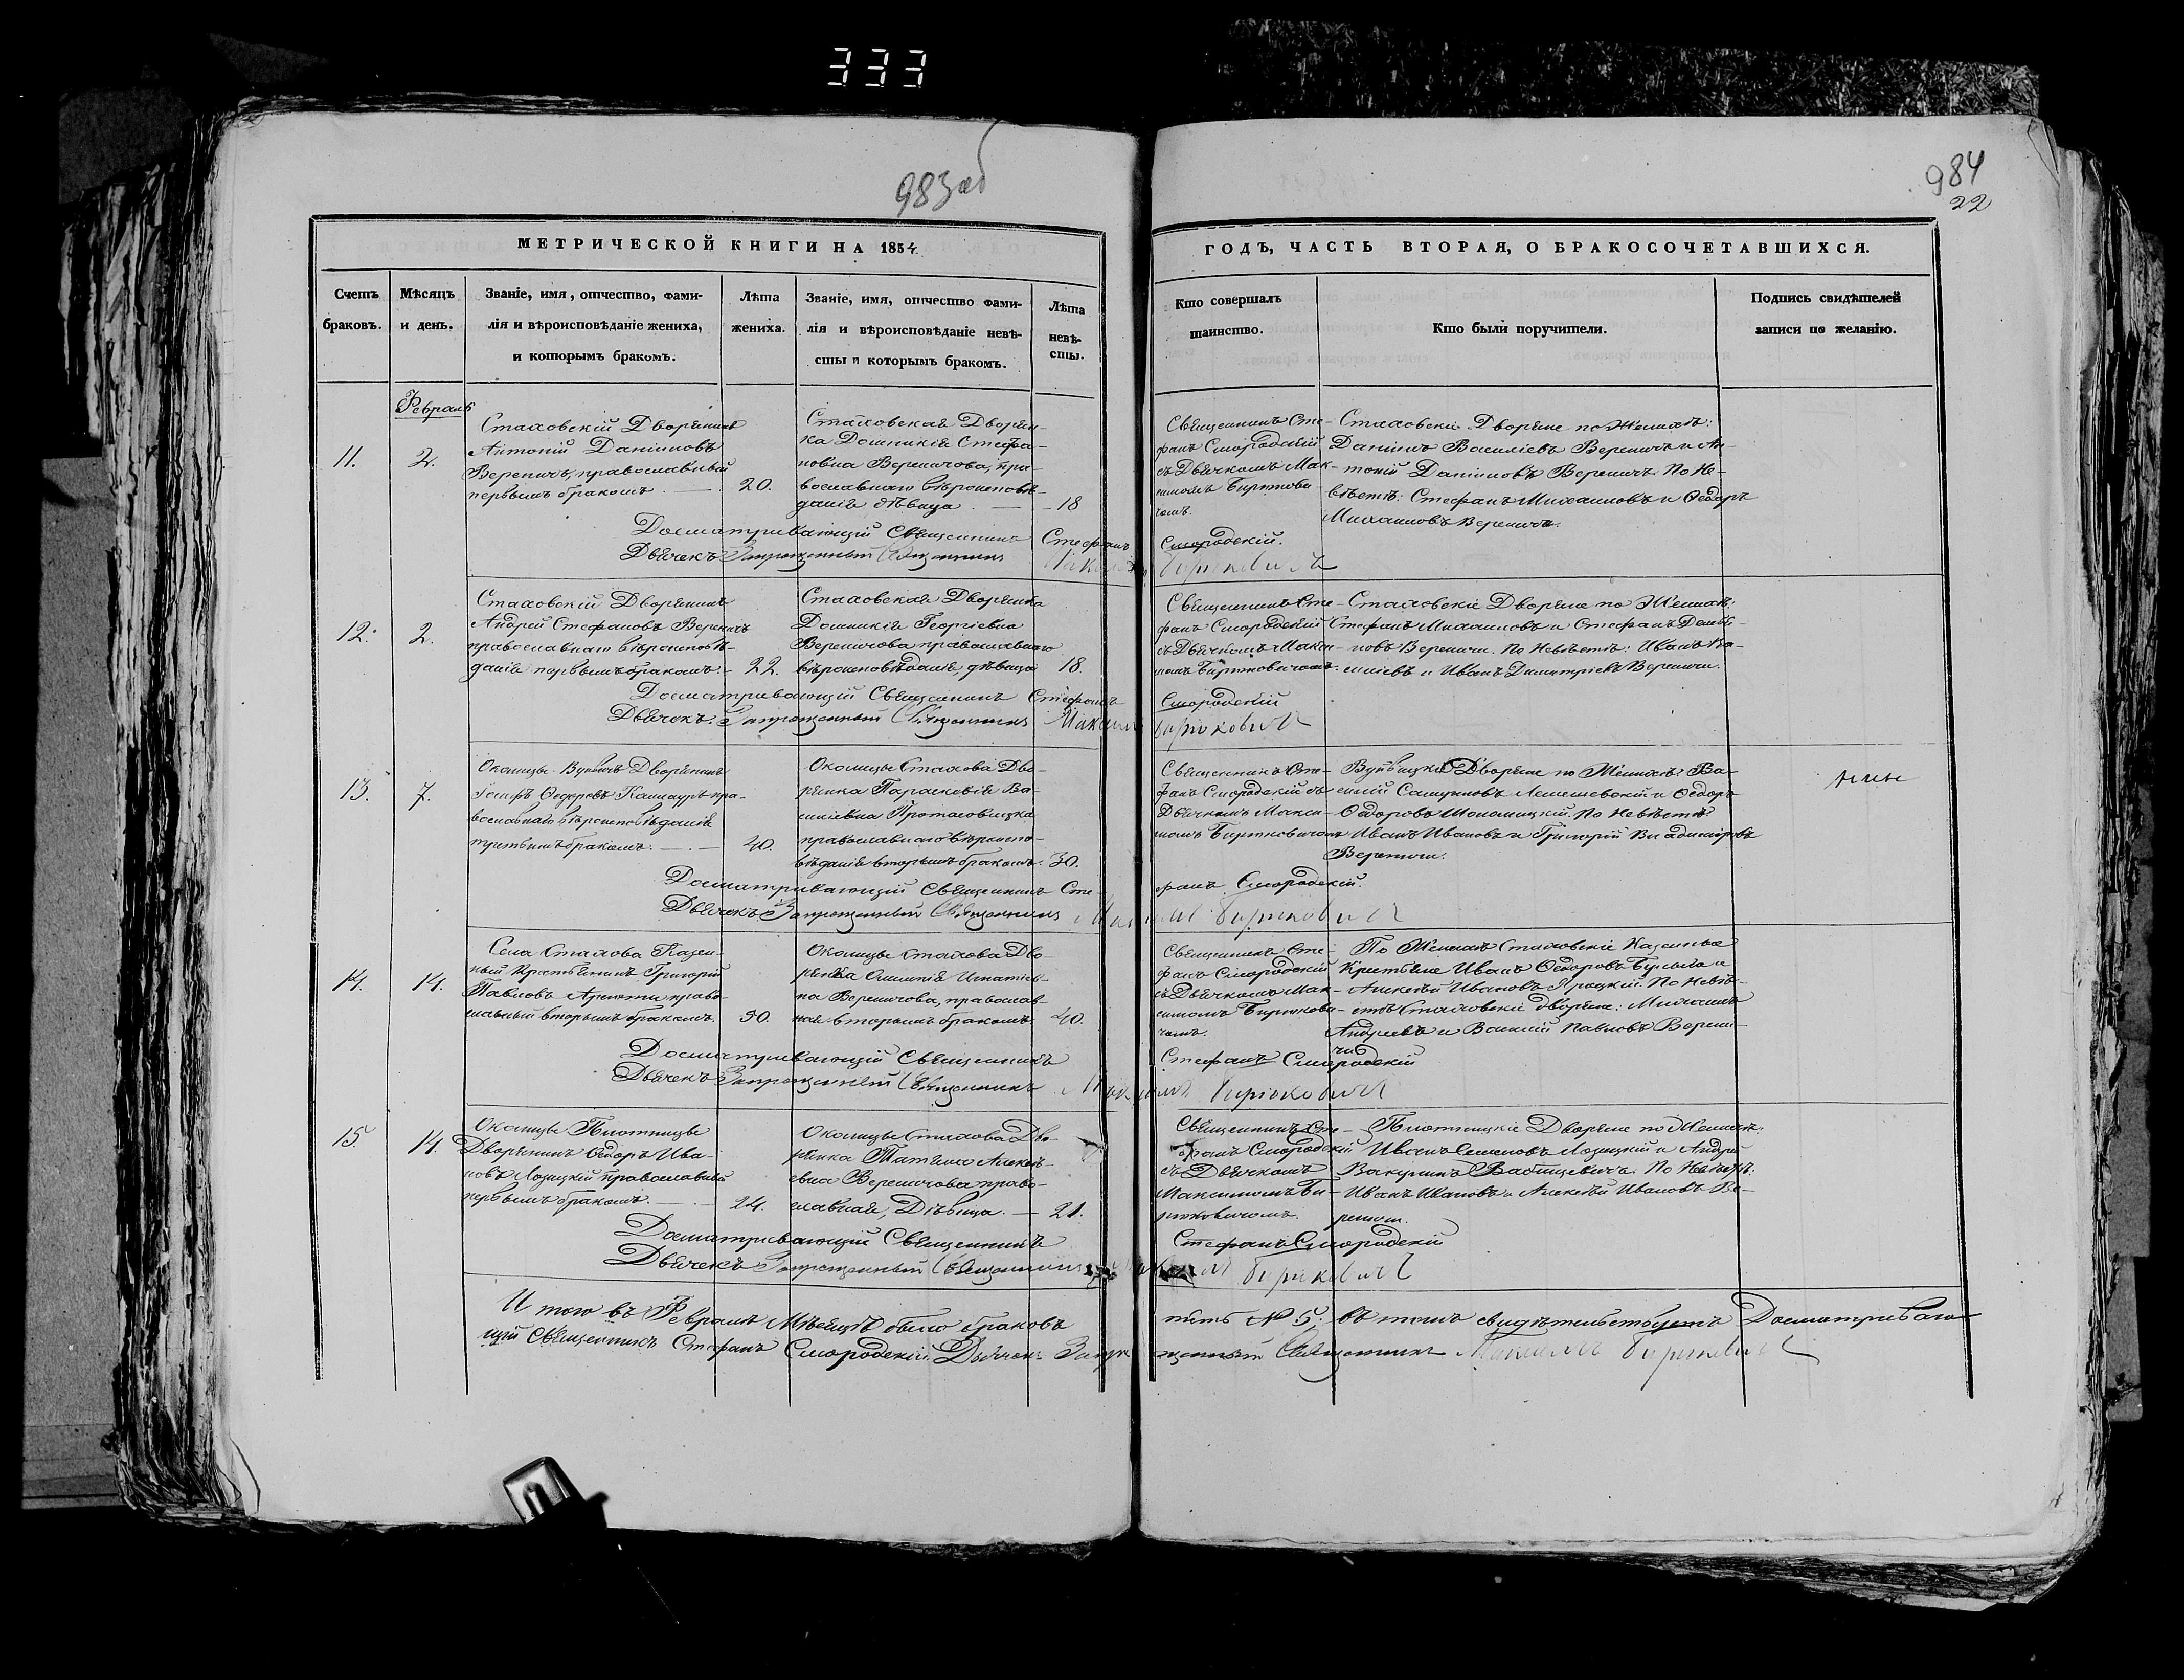 333
983 об
984
22
МЕТРИЧЕСКОЙ КНИГИ НА 1854
ГОДЪ, ЧАСТЬ ВТОРАЯ, О БРАКОСОЧЕТАВШИХСЯ.
Счетъ
браковъ.
Мѣсяцъ
и день.
Званіе, имя, отчество, фами-
лія и вѣроисповѣданіе жениха,
и которымъ бракомъ.
Лѣта
жениха.
Званіе, имя, отчество фами-
лія и вѣроисповѣданіе невѣ-
сты и которымъ бракомъ.
Лѣта
невѣ-
сты.
Кто совершалъ
таинство.
Кто были поручители.
Подпись свидѣтелей
записи по желанію.
Февраль
11.
2.
Стаховскій Дворянинъ
Антоній Даніиловъ
Вереничъ, православный
первымъ бракомъ.
20.
Стаховская Дворян-
ка Домникія Стефа-
новна Вереничова, пра-
вославнаго вѣроисповѣ-
данія дѣвица.
18
Священникъ Сте-
фанъ Смородскій
съ Дьячкомъ Мак-
симомъ Бирюкови-
чомъ.
Стаховскіе Дворяне по Женихѣ:
Даніилъ Василіевъ Вереничъ и Ан-
тоній Даніиловъ Вереничъ. По Не-
вѣстѣ: Стефанъ Михаиловъ и Ѳедоръ
Михаиловъ Вереничи.
Досматривающій Священникъ Стефанъ Смородскій.
Дьячекъ Запрещенный Священникъ Максимъ Бирюковичъ
12.
2.
Стаховскій Дворянинъ
Андрей Стефановъ Вереничъ
православнаго вѣроисповѣ-
данія первымъ бракомъ.
22.
Стаховская Дворянка
Домникія Георгіевна
Вереничова православнаго
вѣроисповѣданія, дѣвица
18.
Священникъ Сте-
фанъ Смородскій
съ Дьячкомъ Макси-
момъ Бирюковичомъ.
Стаховскіе Дворяне по Женихѣ:
Стефанъ Михаиловъ и Стефанъ
новъ Вереничи. По Невѣстѣ: Иванъ Ва-
силіевъ и Иванъ Димитріевъ Вереничи.
Досматривающій Священникъ Стефанъ Смородскій
Дьячокъ Запрещенный Священникъ Максимъ Бирюковичъ
13.
7.
Околицы Вувичъ Дворянинъ
Іосифъ Ѳедоровъ пра-
вославнаго вѣроисповѣданія
третьимъ бракомъ.
40.
Околицы Стахова Дво-
рянка Параскевія Ва-
силіевна Протасовицка
православнаго вѣроиспо-
вѣданія вторымъ бракомъ.
30.
Священникъ Сте-
фанъ Смородскій съ
Дьячкомъ Макси-
момъ Бирюковичомъ
Дворяне по Женихѣ: Ва-
силій Лемешевскій и Ѳедоръ
Ѳедоровъ По Невѣстѣ:
Иванъ Ивановъ и Григорій Владиміровъ
Вереничи.
Досматривающій Священникъ Сте-
фанъ Смородскій.
Дьячекъ Запрещенный Священникъ Максимъ Бирюковичъ
14.
14.
Села Стахова Казен-
ный Крестьянинъ Григорій
Павловъ право-
славный вторымъ бракомъ.
30.
Околицы Стахова Дво-
рянка Игнатіев-
на Вереничова, православ-
ная вторымъ бракомъ
40.
Священникъ Сте-
фанъ Смородскій
съ Дьячкомъ Мак-
симомъ Бирюкови-
чомъ.
По Женихѣ Стаховскіе Казенные
Крестьяне Иванъ Ѳедоровъ и
Алексѣй Ивановъ Яроцкій. По Невѣ-
стѣ Стаховскіе дворяне: Михаилъ
Андреевъ и Василій Павловъ Верени-
чи
Досматривающій Священникъ
Стефанъ Смородскій
Дьячекъ Запрещенный Священникъ Максимъ Бирюковичъ
15
14.
Околицы Плотницы
Дворянинъ Ѳедоръ Ива-
новъ Лозицкій православный
первымъ бракомъ.
24.
Околицы Стахова Дво-
рянка Татіана Алексѣ-
евна Вереничова право-
славная, Дѣвица.
21.
Священникъ Сте-
фанъ Смородскій
съ Дьячкомъ
Максимомъ Би-
рюковичомъ.
Плотницкіе Дворяне по Женихѣ:
Иванъ Семеновъ Лозицкій и Андрей
По Невѣстѣ:
Иванъ Ивановъ и Алексѣй Ивановъ Ве-
реничи.
Досматривающій Священникъ
Стефанъ Смородскій
Дьячекъ Запрещенный Священникъ Максимъ Бирюковичъ
Итого въ Февралѣ Мѣсяцѣ было браковъ пять № 5. въ томъ свидѣтельствуетъ Досматриваю-
щій Священникъ Стефанъ Смородскій Дьячокъ Запрещенный Священникъ Максимъ Бирюковичъ